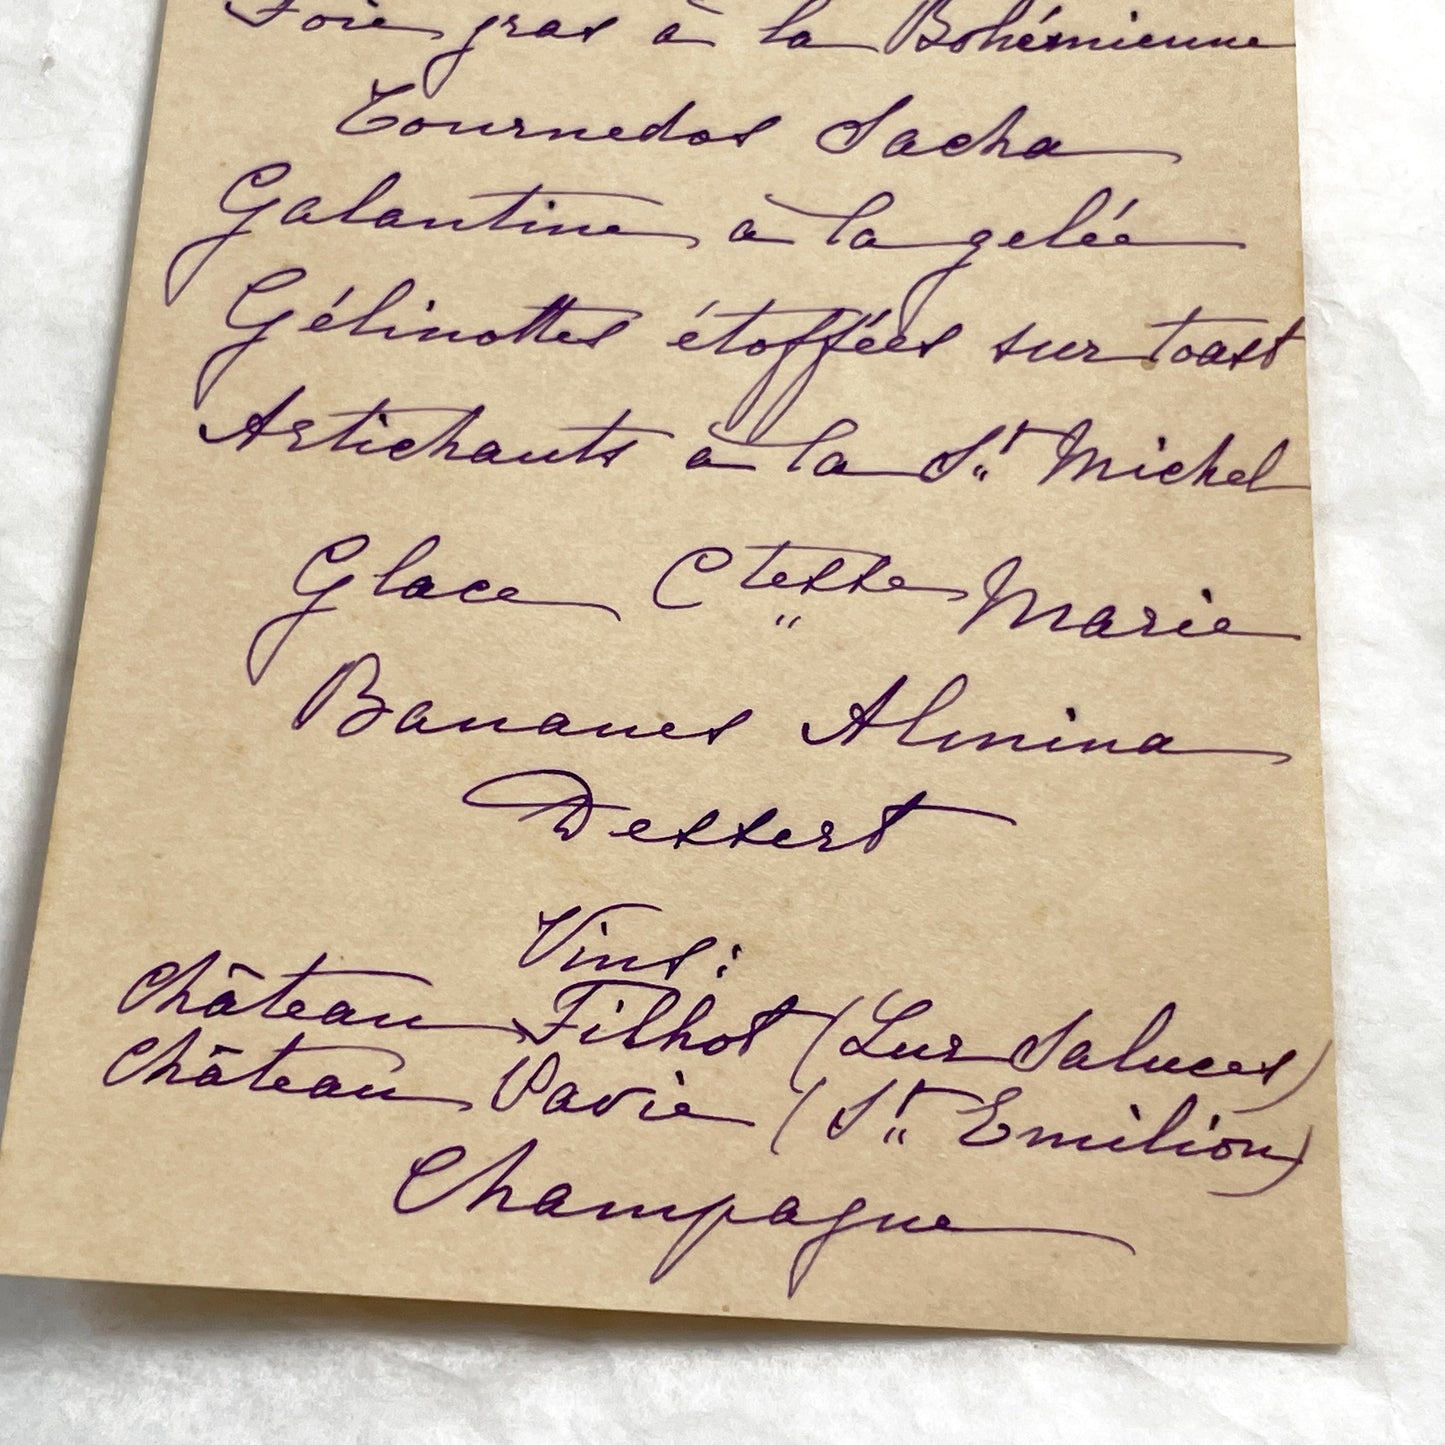 Foie gras à la Bohémienne
Tournedos Sacha
Galantine à la gelée
Gélinottes étoffées sur toast
Artichauts à la St Michel
Glace Ctesse Marie
Bananes Almina
Dessert
Vins:
Château Filhot (Lur Saluces)
Château Pavie (St Emilion)
Champagne